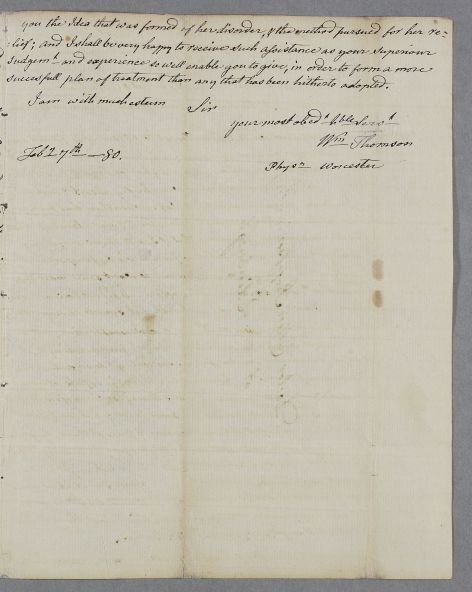 you the Idea that was formed of her disorder, & the method pursued for her re-
lief; and I shall be very happy to receive such assistance as your Superiour
Judgemt and experience so well enable you to give, in order to form a more
successfull plan of treatment than any that has been hitherto adopted.
I am with much esteem Sir
your most obedt hble Servt
Wm Thomson
Physn Worcester
Feb 27th — 80.